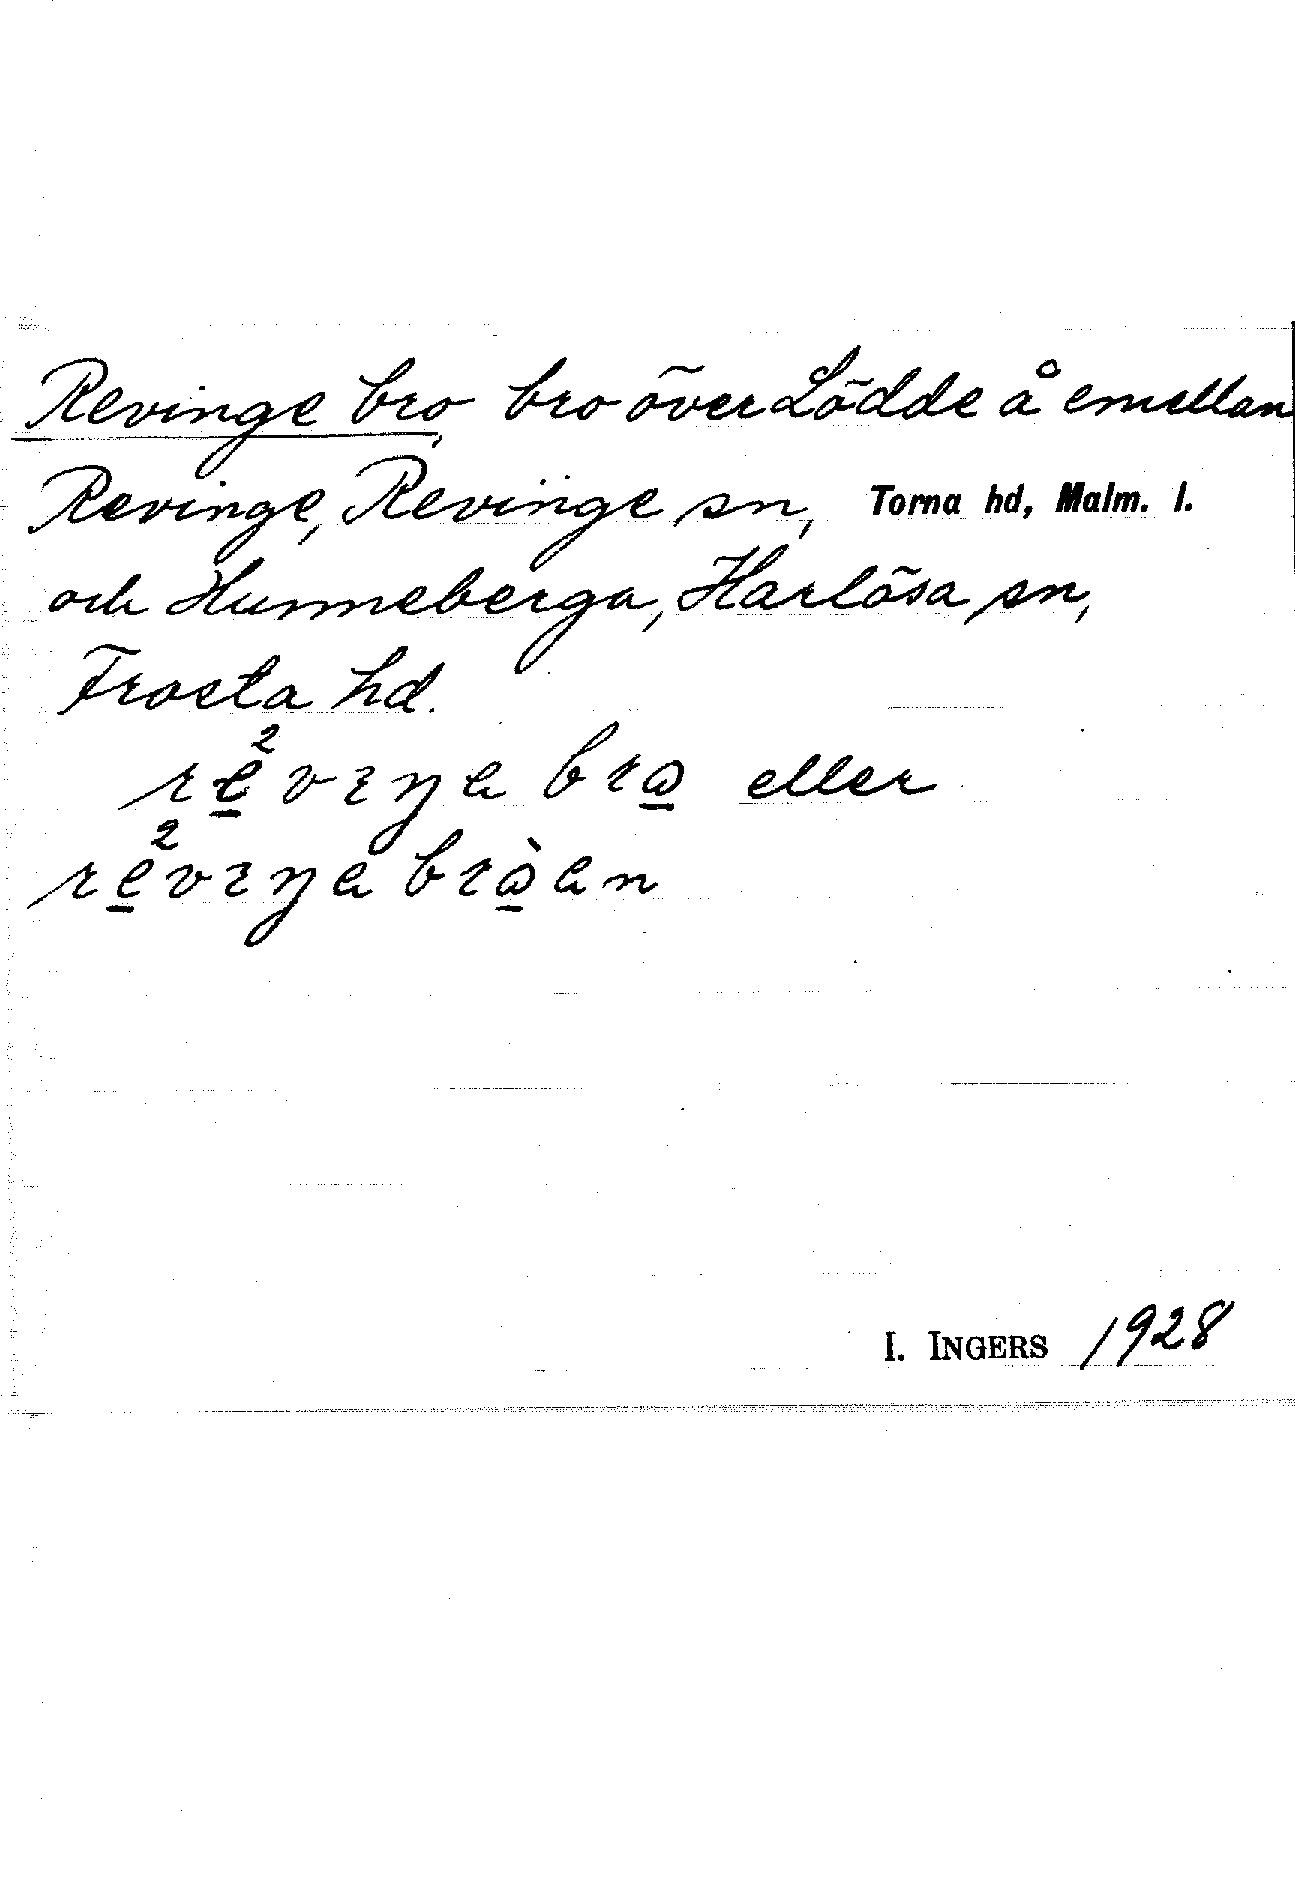 Revinge bro, bro över Lödde å emellan
Revinge, Revinge sn, Torna hd, Malm. l.
och Hunneberga, Harlösa sn,
Frosta hd.
re̱²vɪŋa brɷ̱ eller
re̱²vɪŋa brɷ̱̀an
I. INGERS 1928